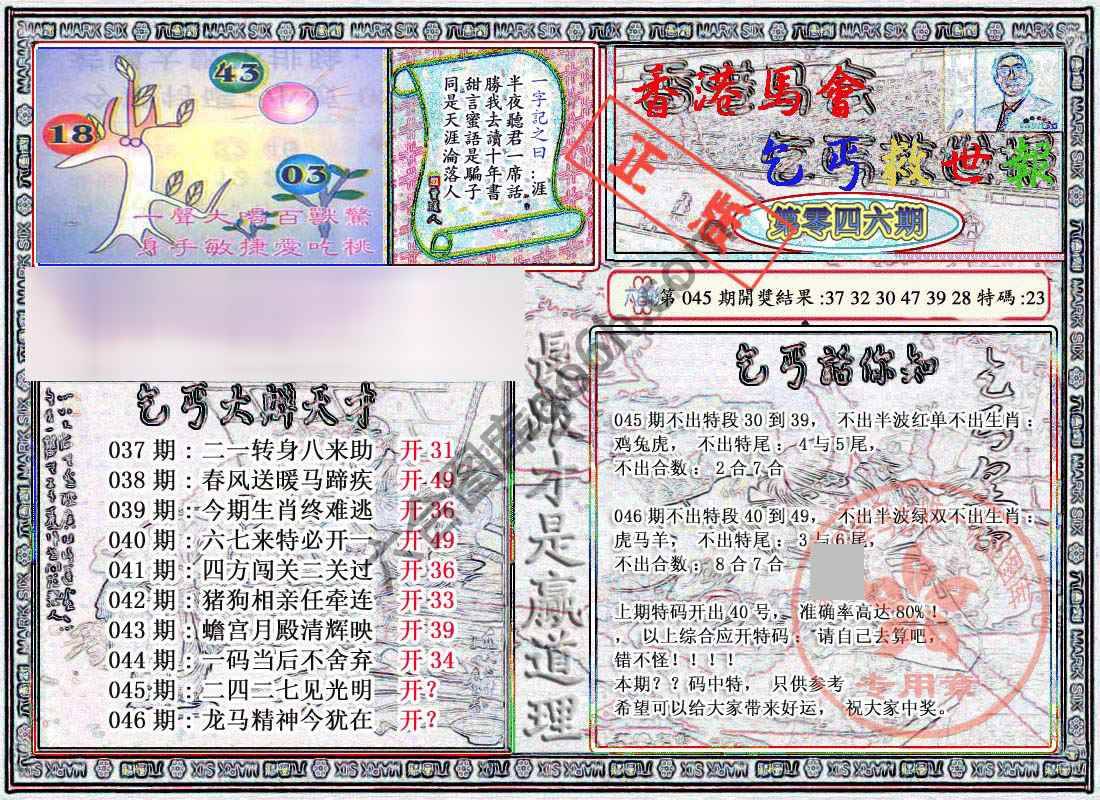 MARK SIX
43
18
03
一聲大喝百獸驚
身手敏捷愛吃桃
一字記之曰：涯
半夜聽君一席話
勝我去讀十年書
甜言蜜語是騙子
同是天涯淪落人
香港馬會
乞丐救世報
第零四六期
正
第 045 期開獎結果 :37 32 30 47 39 28 特碼 :23
乞丐大解天才
037 期：二一转身八来助 开 31
038 期：春风送暖马蹄疾 开 49
039 期：今期生肖终难逃 开 36
040 期：六七来特必开一 开 49
041 期：四方闯关二关过 开 36
042 期：猪狗相亲任牵连 开 33
043 期：蟾宫月殿清辉映 开 39
044 期：一码当后不舍弃 开 34
045 期：二四二七见光明 开？
046 期：龙马精神今犹在 开？
是赢道理
乞丐話你知
045 期不出特段 30 到 39， 不出半波红单不出生肖：
鸡兔虎， 不出特尾： 4 与 5 尾，
不出合数： 2 合 7 合
046 期不出特段 40 到 49， 不出半波绿双不出生肖：
虎马羊， 不出特尾： 3 与 6 尾，
不出合数： 8 合 7 合
上期特码开出 40 号， 准确率高达 80%！
， 以上综合应开特码： 请自己去算吧，
错不怪！！！！
本期？？码中特， 只供参考
希望可以给大家带来好运， 祝大家中奖。
专用章